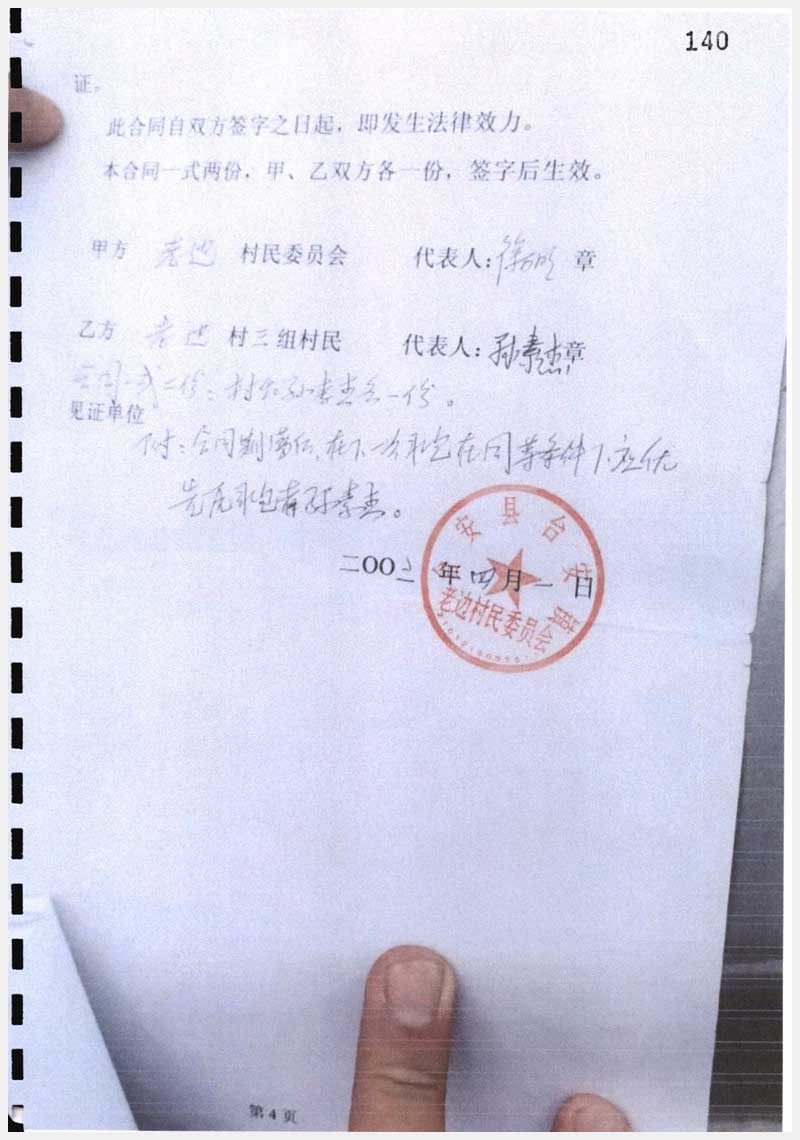 140
证。
此合同自双方签字之日起，即发生法律效力。
本合同一式两份，甲、乙双方各一份，签字后生效。
甲方 老边 村民委员会 代表人： 章
乙方 老边 村三组村民 代表人：孙素杰章
合同一式二份：村和孙素杰各一份。
见证单位
附：合同期满后，在下一次承包在同等条件下应优
先原承包者孙素杰。
二OO 年四月一日
安县台
老边村民委员会
第4页